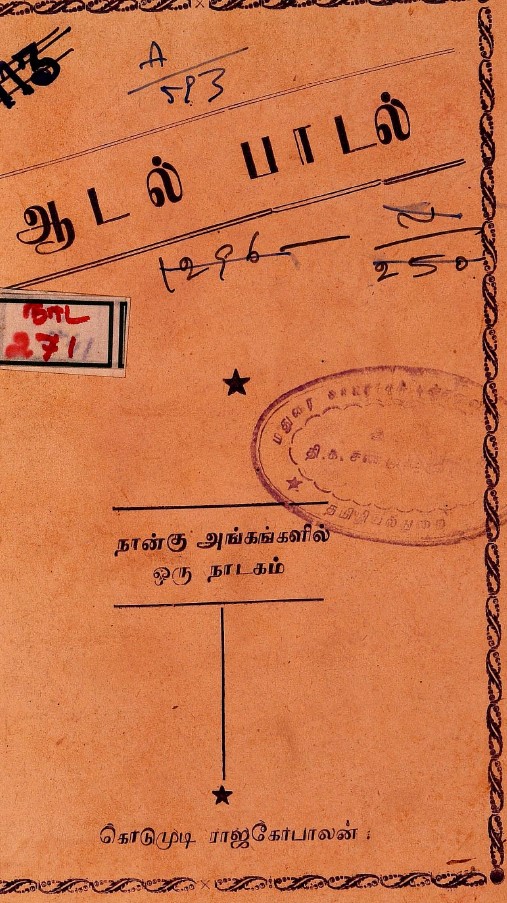 A
593
ஆடல் பாடல்
1296
250
நாட
271
மதுரை
தி.க.
தமிழியல்துறை
நான்கு அங்கங்களில்
ஒரு நாடகம்
கொடுமுடி ராஜகோபாலன்